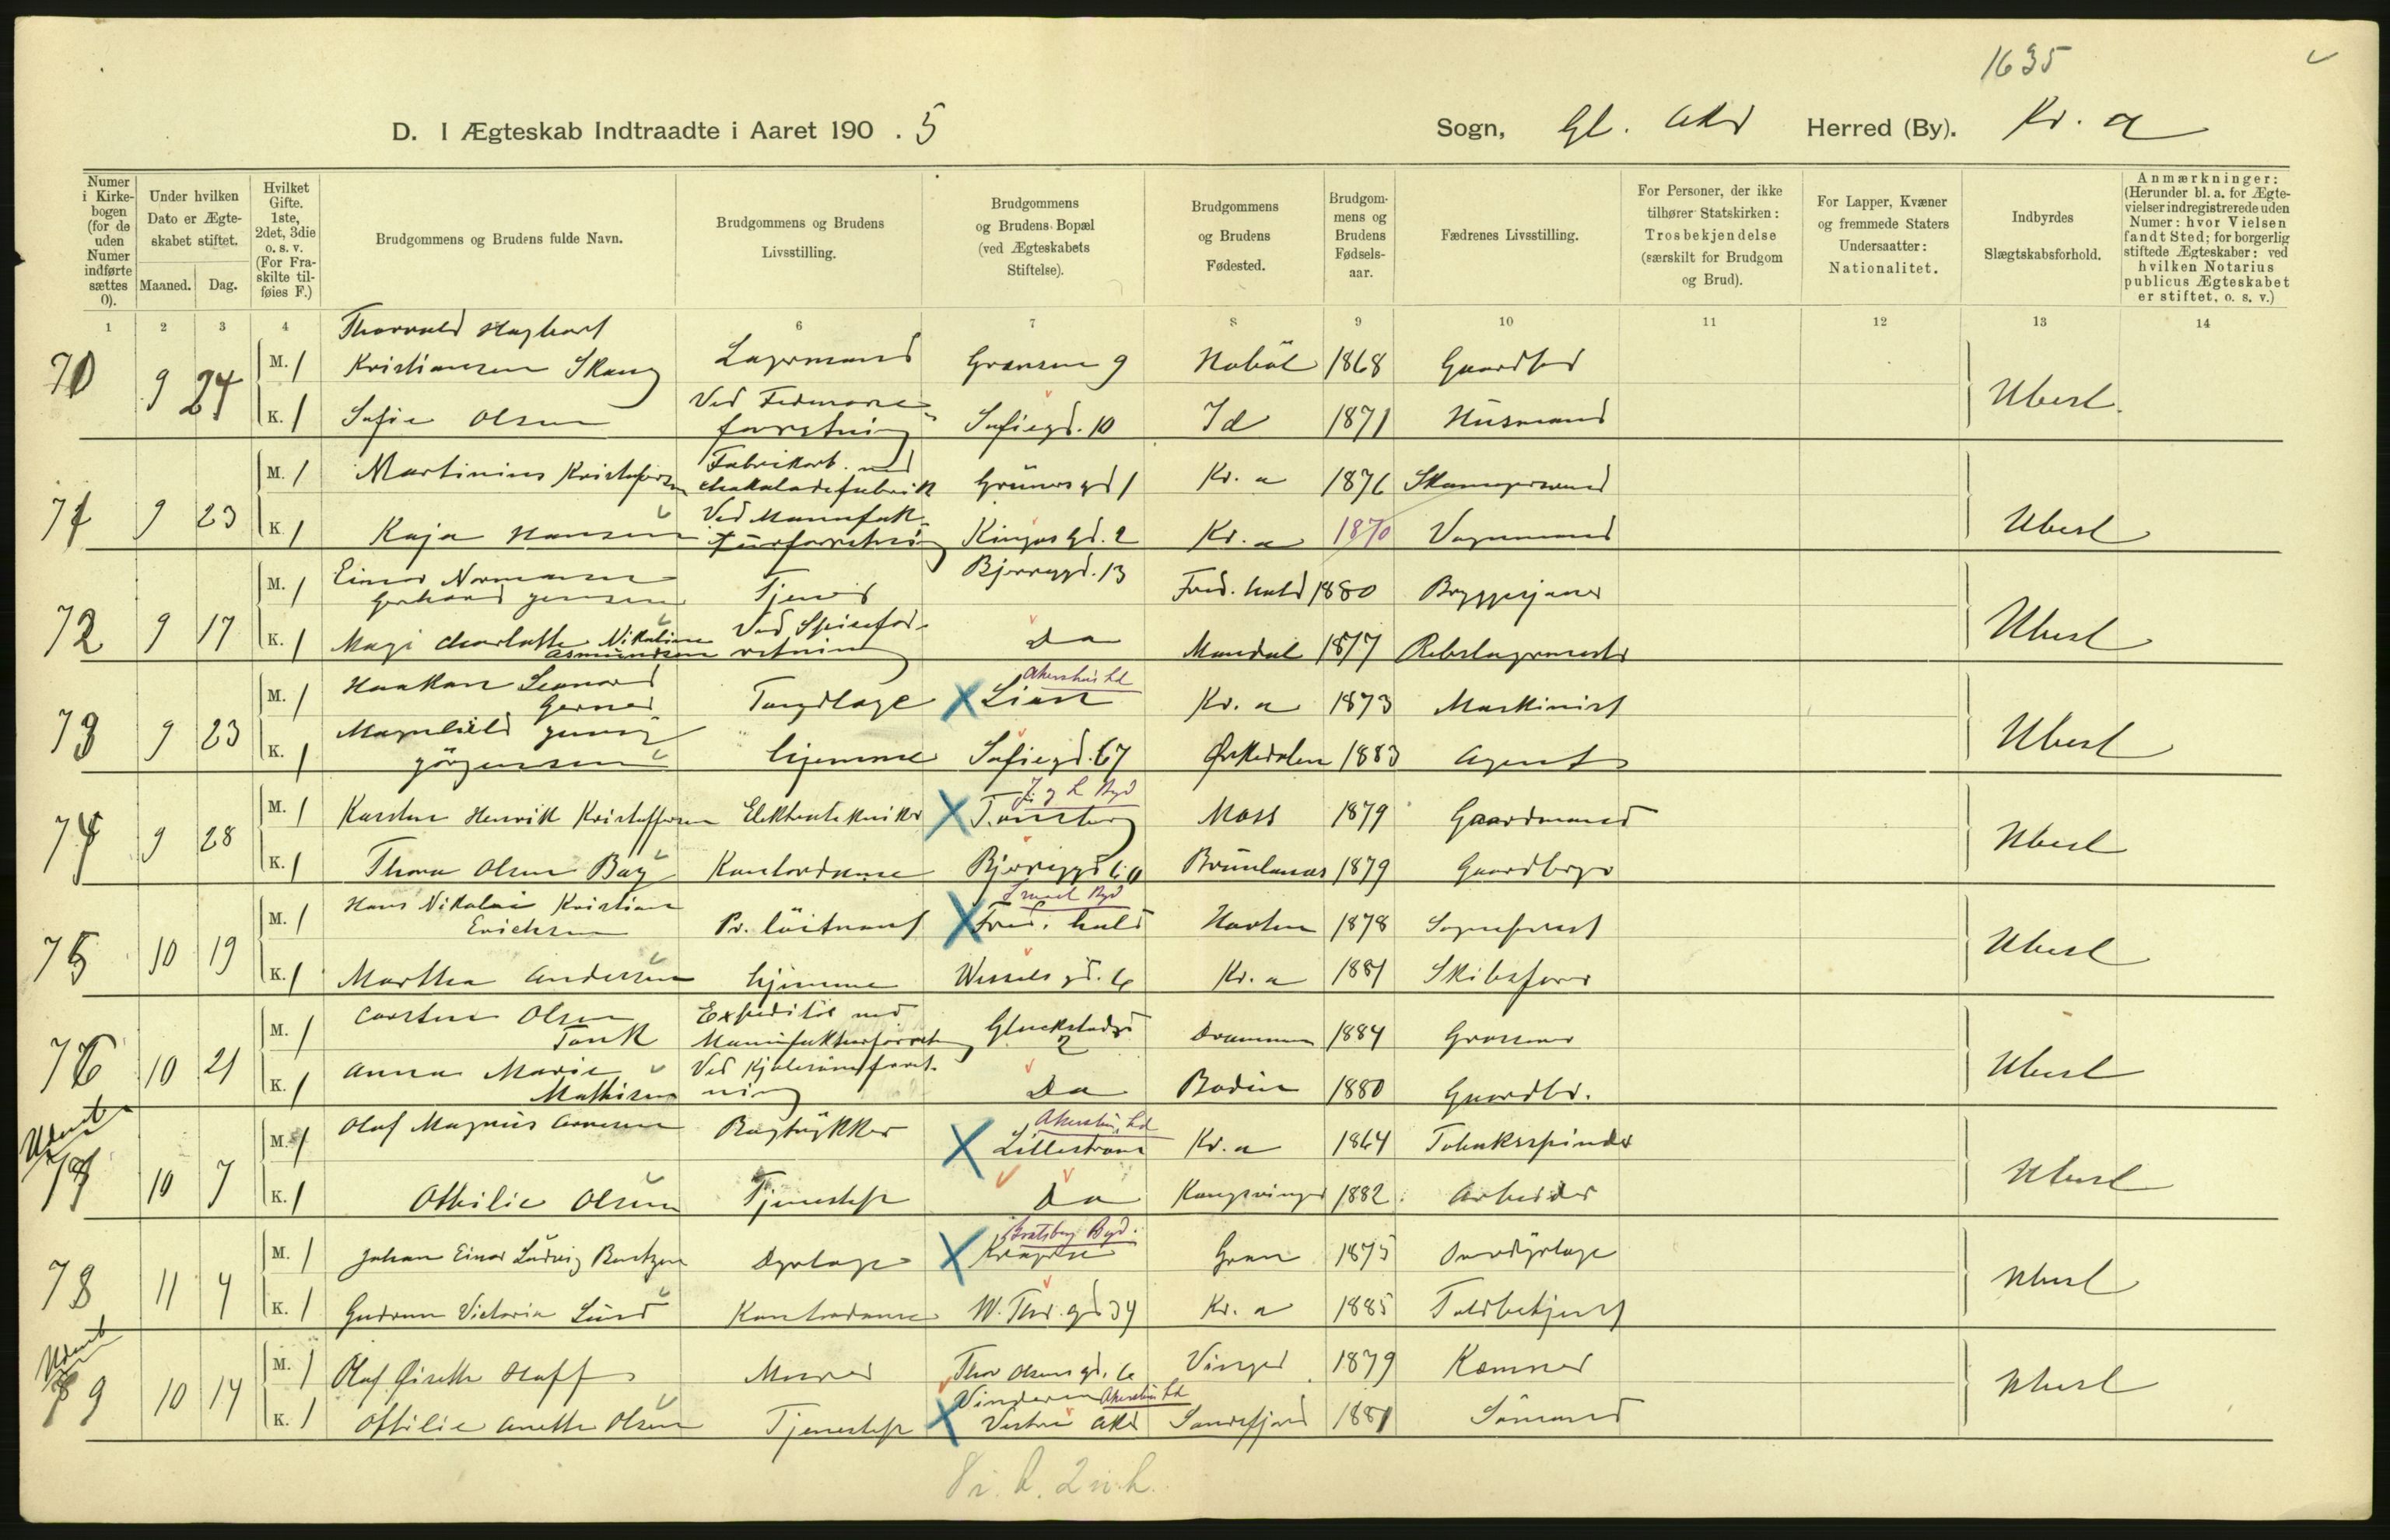 1635
D. I Ægteskab Indtraadte i Aaret 190 . 5
Sogn, Gl. Aker Herred (By). Kr. a
Numer i Kirkebogen (for de uden Numer indførte sættes 0).
Under hvilken Dato er Ægteskabet stiftet.
Maaned. Dag.
Hvilket Gifte. 1ste, 2det, 3die o. s. v. (For Fraskilte tilføies F.)
Brudgommens og Brudens fulde Navn.
Brudgommens og Brudens Livsstilling.
Brudgommens og Brudens Bopæl (ved Ægteskabets Stiftelse).
Brudgommens og Brudens Fødested.
Brudgommens og Brudens Fødselsaar.
Fædrenes Livsstilling.
For Personer, der ikke tilhører Statskirken: Trosbekjendelse (særskilt for Brudgom og Brud).
For Lapper, Kvæner og fremmede Staters Undersaatter: Nationalitet.
Indbyrdes Slægtskabsforhold.
Anmærkninger: (Herunder bl. a. for Ægtevielser indregistrerede uden Numer: hvor Vielsen fandt Sted; for borgerlig stiftede Ægteskaber: ved hvilken Notarius publicus Ægteskabet er stiftet, o. s. v.)
1 2 3 4 6 7 8 9 10 11 12 13 14
70 9 24 M. 1 Thorvald Hagbart Kristiansen Skaug Lagermand Grænsen 9 Hobøl 1868 Gaardbr Ubesl.
K. 1 Sofie Olsen Ved Fedevareforretning Sofiegd. 10 Id 1871 Husmand
71 9 23 M. 1 Martinius Kristofersen Fabrikarb. ved Chokoladefabrik Grünersgd 1 Kr. a 1876 Skomagersvend Ubesl
K. 1 Kaja Hansen Ved Manufakturforretning Kingosgd. 2 Kr. a 1870 Vognmand
72 9 17 M. 1 Einar Normann Gerhard Jensen Tjener Bjerregd. 13 Fred. hald 1880 Bryggesjauer Ubesl
K. 1 Magi Charlotte Nikoline Asmundsen Ved Spiseforretning Do Mandal 1877 Rebslagermester
73 9 23 M. 1 Haakon Leonard Gerner Tandlæge Lian Akershus Ld Kr. a 1873 Maskinist Ubesl
K. 1 Magnhild Jørgensen hjemme Sofiegd. 67 Ørkedalen 1883 Agent
74 9 28 M. 1 Karsten Henrik Kristoffersen Elektrotekniker J. g L Byd Tønsberg Moss 1879 Gaardmand Ubesl
K. 1 Thora Olsen Bøy Kontordame Bjerregd 60 Brunlanæs 1879 Gaardbrger
75 10 19 M. 1 Hans Nikolai Kristian Erichsen Pr. løitnant Smaal Byd Fred. hald Horten 1878 Sogneprest Ubesl
K. 1 Marthea Andersen hjemme Wesselsgd. 6 Kr. a 1881 Skibsfører
76 10 21 M. 1 Carsten Olsen Tank Expeditør ved Manufakturforretn Glückstadsgd 2 Drammen 1884 Grosserer Ubesl
K. 1 Anna Marie Mathisen Ved Kjolesømforretning Do Bodin 1880 Gaardbr.
Udenb
77 10 7 M. 1 Olaf Magnus Arnesen Bogtrykker Akershus Ld Lillestrøm Kr. a 1864 Tobakspinder Ubesl
K. 1 Othilie Olsen Tjenestepi Do Kongsvinger 1882 Arbeider
78 11 4 M. 1 Johan Einar Ludvig Bentzen Dyrlæge Bratsberg Byd. Kragerø Gran 1875 Overdyrlæge Ubesl
K. 1 Gudrun Victoria Lund Kontordame W. Thr. gd 34 Kr. a 1885 Toldbetjent
Udenb
79 10 14 M. 1 Olaf Hoff Murer Thor Olsens gd. 6 Vinger 1879 Kæmner Ubesl
K. 1 Othilie Anette Olsen Tjenestepi Vinderen Akershus Ld Vestre Aker Sandefjord 1881 Sømand